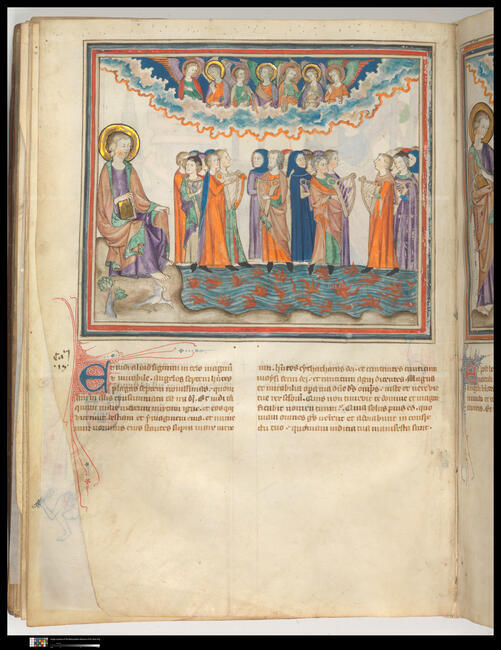 Et vidi aliud signum in celo magnum
et mirabile. angelos septem hntes
plagas septem novissimas. quoni
am in illis consummata est ira di. Et vidi tā
quam mare vitreum mixtum igne. et eos qui
vicerunt bestiam et ymaginem eius. et nume
rum nominis eius stantes supra mare vitre
um. hntes cytharas dei. et cantantes canticum
moysi servi dei. et canticum agni dicentes. Magna
et mirabilia opera tua dne ds omps. iuste et vere vie
tue rex sclorum. Quis non timebit te domine et magni
ficabit nomen tuum. Quia solus pius es. quo
niam omnes gentes venient et adorabunt in conspe
ctu tuo. quoniam iudicia tua manifesta sunt.